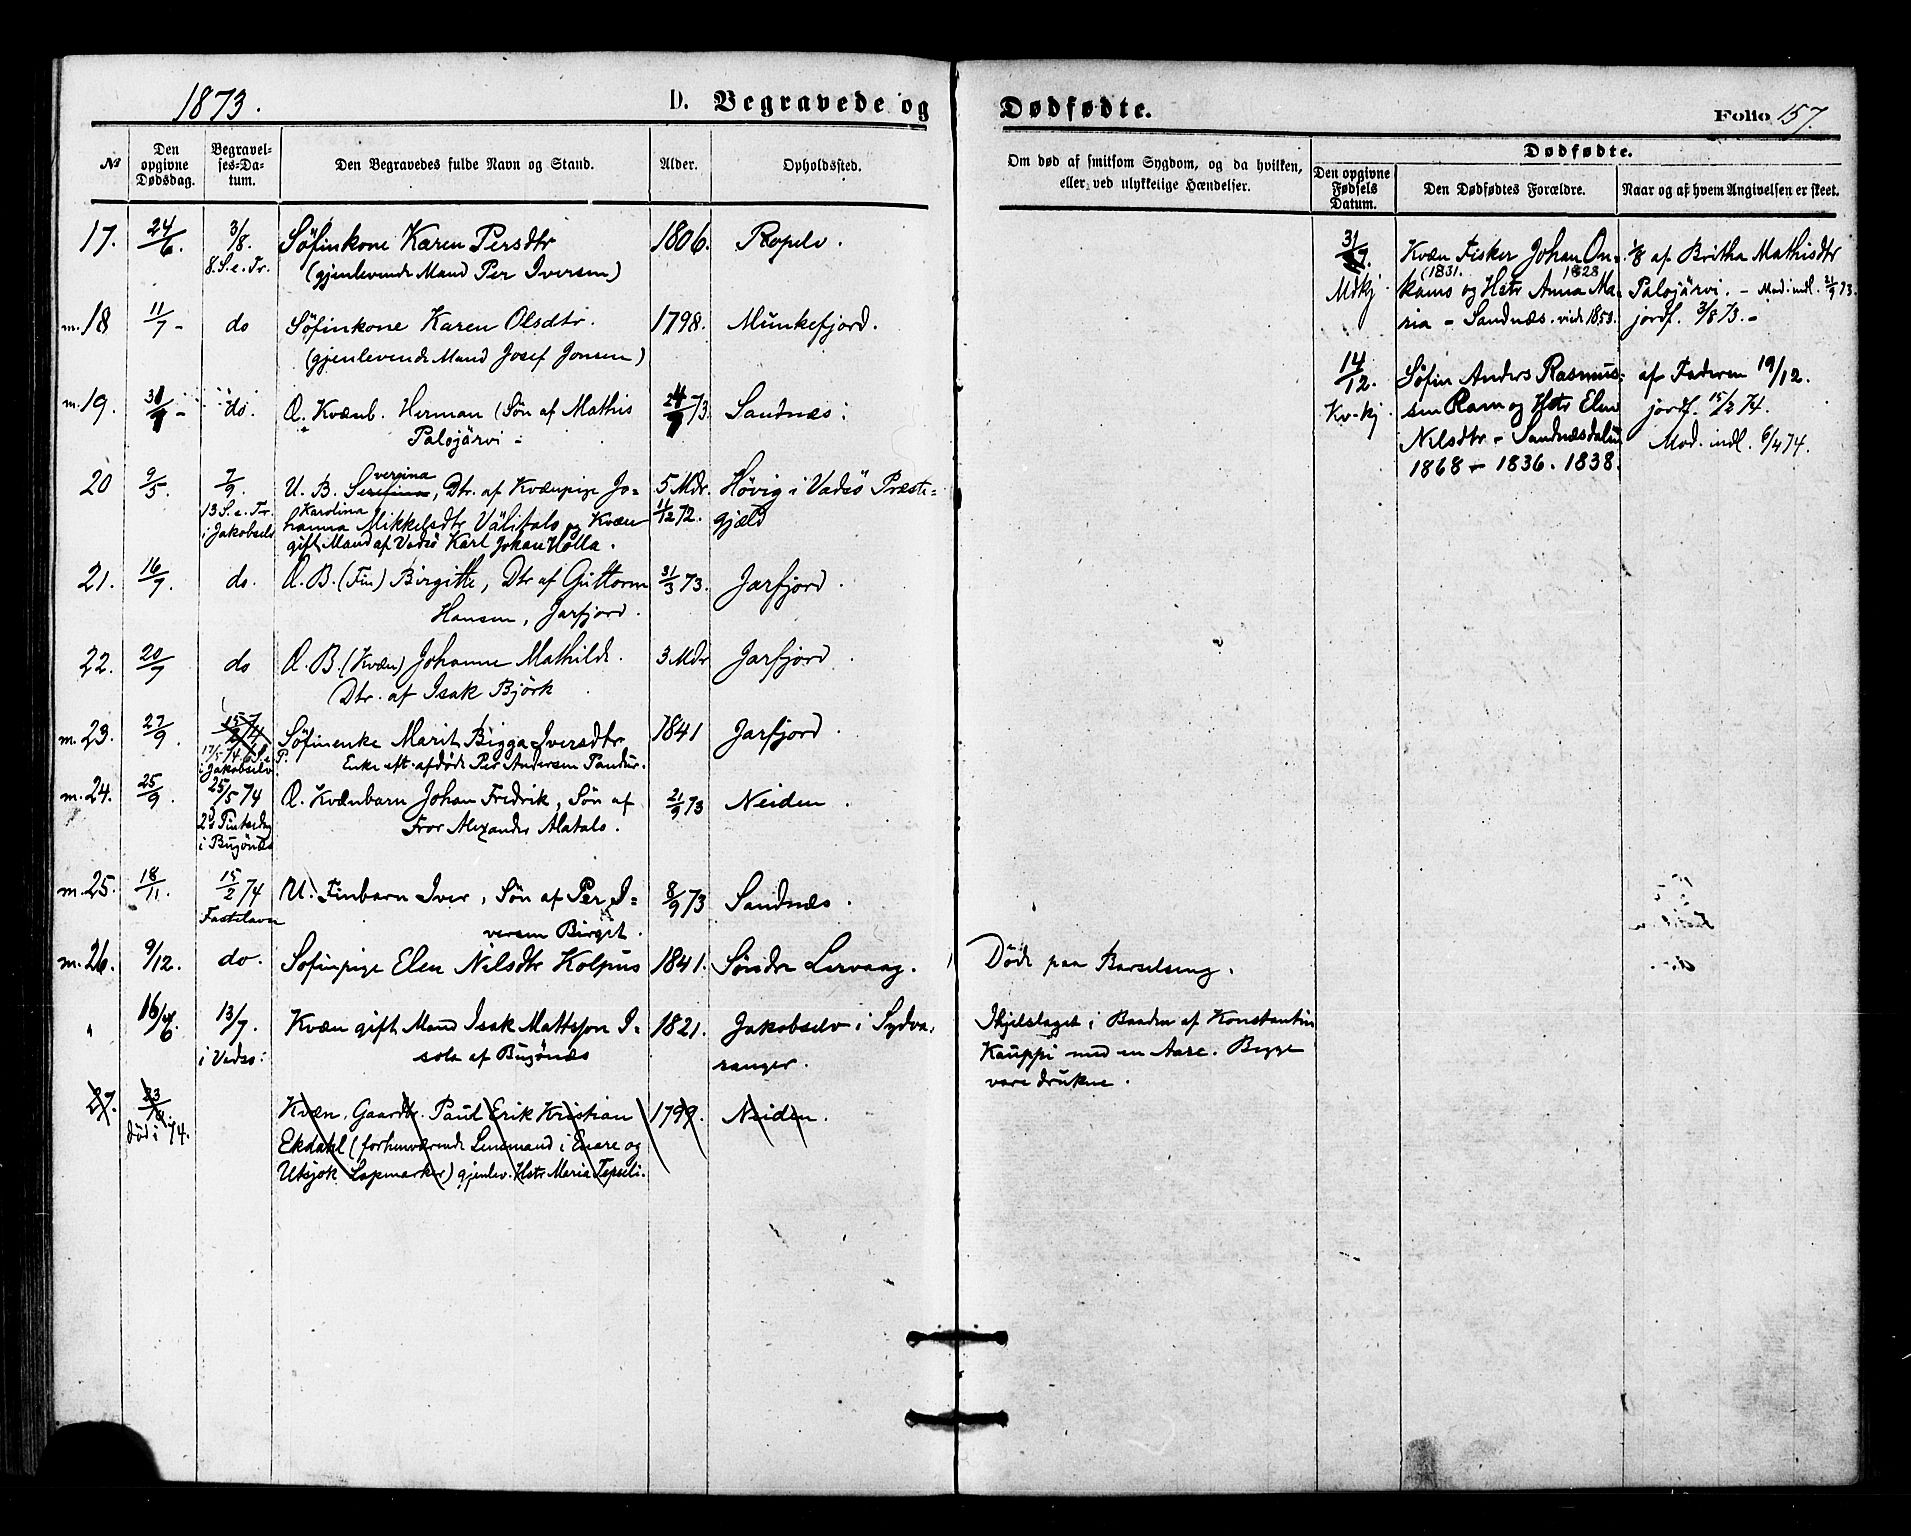 1873.
D. Begravede og Dødfødte.
Folio 157.
№
Den opgivne Dødsdag.
Begravelses-Datum.
Den Begravedes fulde Navn og Stand.
Alder.
Opholdssted.
Om død af smitsom Sygdom, og da hvilken, eller ved ulykkelige Hændelser.
Dødfødte.
Den opgivne Fødsels Datum.
Den Dødfødtes Forældre.
Naar og af hvem Angivelsen er skeet.
17. 24/6. 3/8. Söfinkone Karen Persdtr 1806. Ropelv.
8. S. e. Tr. (gjenlevende Mand Per Iversen)
m. 18 11/7 - do Söfinkone Karen Olsdtr. 1798. Munkefjord.
(gjenlevende Mand Josef Jonsen)
m. 19. do. Æ. Kvænb. Herman (Søn af Mathis 73. Sandnæs.
Palojärvi -
20 9/5. 7/9. U. B. Severina, Dtr. af Kvænpige Jo= 5 Mdr. Høvig i Vadsö Præste=
13 S. e. Tr. hanna Karolina Mikkelsdtr Välitalo og Kvæn 11/12 72. gjæld
i Jakobselv gift Mand af Vadsö Karl Johan Holla.
21. 16/7. do. Æ. B. (Fin) Birgitte, Dtr af Guttorm 31/3 73. Jarfjord.
Hansen, Jarfjord.
22. 20/7 do Æ. B. (Kvæn) Johanne Mathilde. 3 Mdr Jarfjord
Dtr. af Isak Björk
m. 23. 27/9. Söfinenke Marit Bigga Iversdtr 1841 Jarfjord
i Jakobselv. Enke eft. afdöde Per Andersen Pandur.
m. 24. 25/9. 25/5 74 Æ. Kvænbarn Johan Fredrik, Sön af 21/9 73 Neiden.
2d Pintsedag Fror Alexander Alatalo.
i Bugönæs
m. 25. 18/11. 15/2 74 U. Finbarn Iver, Sön af Per I= 8/9 73 Sandnæs.
Fastelavn versen Birget.
m. 26. 9/12. do. Sofinpige Elen Nilsdtr Kolpus 1841. Söndre Lervaag. Döde paa Barselseng.
" 16/6. 13/7. Kvæn gift Mand Isak Mattsson I= 1821. Jakobselv i Sydva= Ihjelslaget i Baaden af Konstantin
i Vadsö: sola af Bugönæs ranger. Kauppi med en Aare. Begge
vare drukne.
27. 23/9. Kvæn. Gaardbr. Paul Erik Kristian 1799. Neiden.
död i 74. Ekdahl (forhenværende Lensmand i Enare og
Utsjok Lapmarker) gjenlev. Hstr Maria Tepseli.
31/7. Kvæn Fisker Johan On= 1/8 af Britha Mathisdtr
Mdkj. kamo (1831. og Hstr Anna Ma= 1828 Palojärvi. - Mod. indl. 21/9 73.
ria - Sandnæs. viede 1853. jordf. 3/8 73. -
14/12. Söfin Anders Rasmus= af Faderen 19/12.
Kv-kj sen Ram og Hstr Elen jordf. 15/2 74.
Nilsdtr - Sandnæsdalen Mod. indl. 6/4 74.
1868 - 1836. 1838.